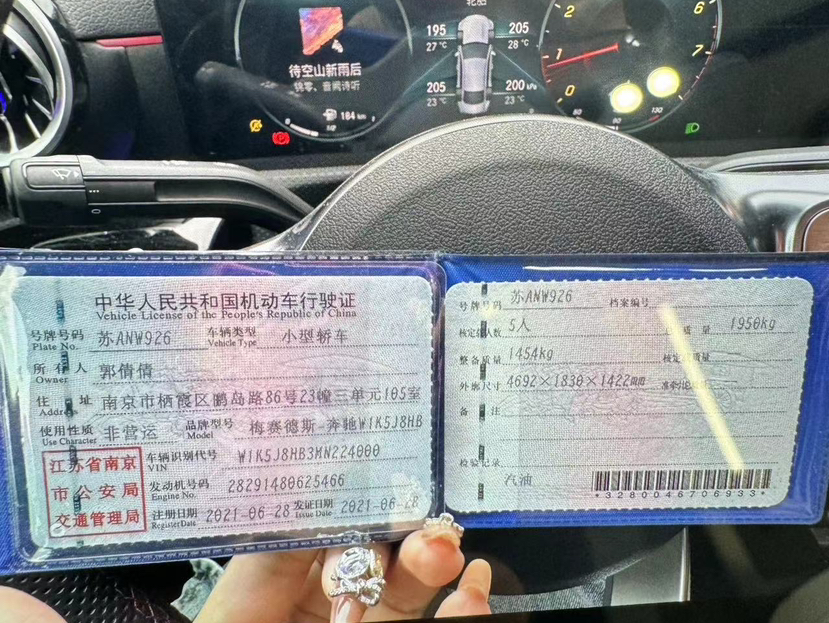 轮胎
195 205
27℃ 28℃
待空山新雨后
锦零、音阙诗听
205 200 kPa
23℃ 23℃
184 km
2
1
0
6
7
50 90 130
中华人民共和国机动车行驶证
Vehicle License of the People's Republic of China
号牌号码 苏ANW926 车辆类型 小型轿车
Plate No. Vehicle Type
所有人 郭倩倩
Owner
住址 南京市栖霞区鹏岛路86号23幢三单元105室
Address
使用性质 非营运 品牌型号 梅赛德斯-奔驰W1K5J8HB
Use Character Model
江苏省南京
市公安局
交通管理局
车辆识别代号 W1K5J8HB3MN224000
VIN
发动机号码 28291480625466
Engine No.
注册日期 2021-06-28 发证日期 2021-06-28
Register Date Issue Date
号牌号码 苏ANW926 档案编号
核定载人数 5人 质量 1950kg
整备质量 1454kg 核定 质量
外廓尺寸 4692×1830×1422mm
备注
检验记录
汽油
*3280046706933*